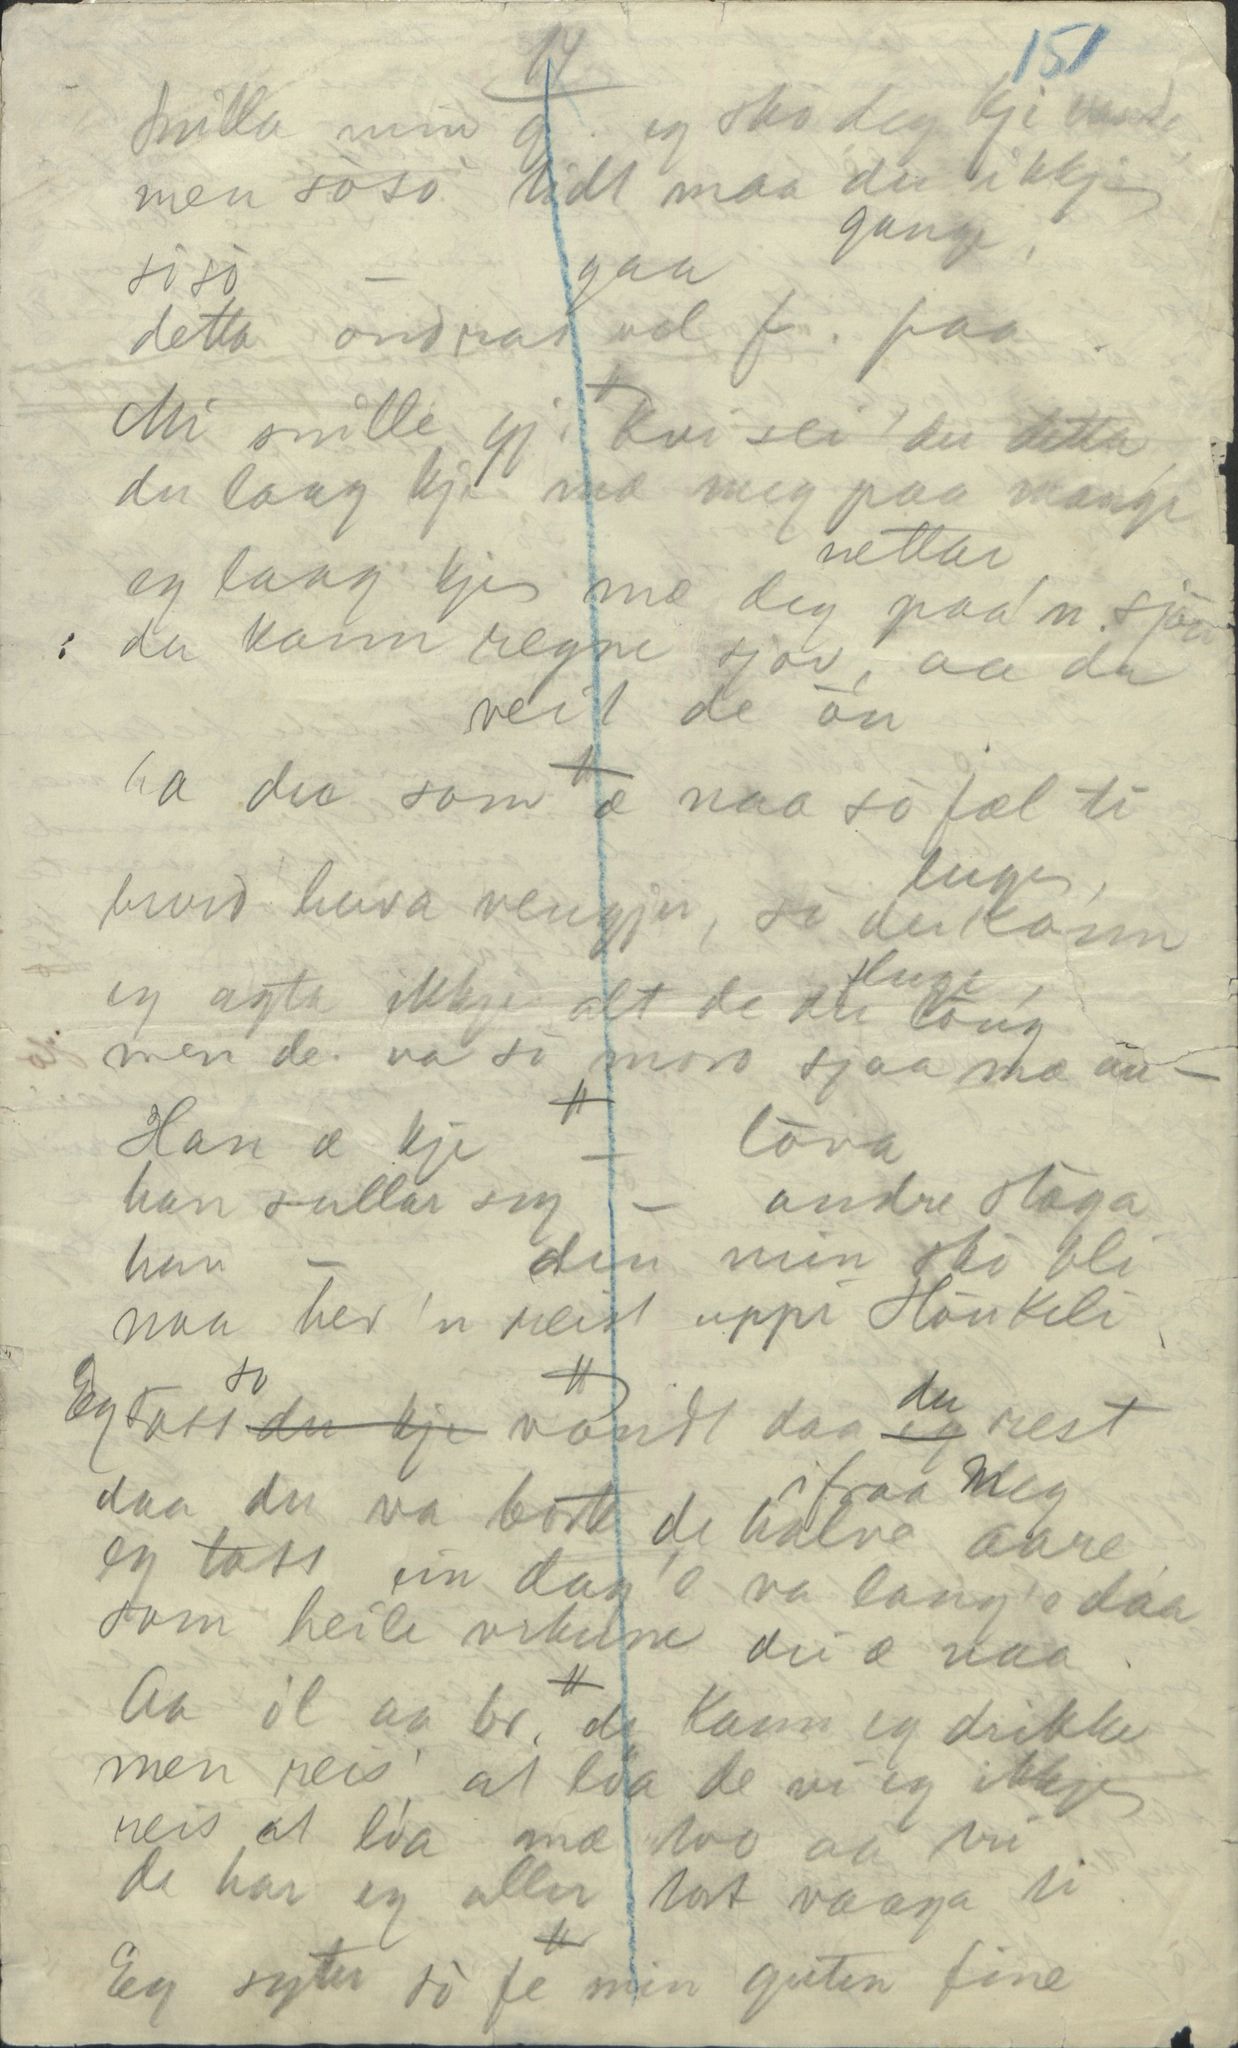 14
151
Snilla min g. eg sko deg kji vande,
men söso tidt maa du ikkje
gange,
söso — gaa
detta öndras vel f. paa.
Mi snille gj. kvi sei' du detta
du laag kje mæ meg paa mange
nettar
eg laag kje mæ deg paa'n sjöen
: du kann regne sjov, aa du
veit de ön
ha du som æ naa so fæl ti
luge,
hurd hava vengjir, so du kann
fluge,
eg agta ikkje alt de du löug
men de va so moro sjaa mæ öu —
Han æ kje — löva
han sullar seg — andre stöga
han — den min sko bli
naa her'n reist uppi Höukeli
Eg toss so du kje vöndt daa du eg rest
ifraa meg
daa du va bort de halve aare
eg toss ein dag'e va lang'e daa
som heile vikune dei æ naa.
Aa öl aa br. de kann eg drikke
men reis' at lia de vi eg ikkje
reis at lia mæ tvo aa tri
de har eg aller tort vaaga ti.
Eg syter so fe min guten fine